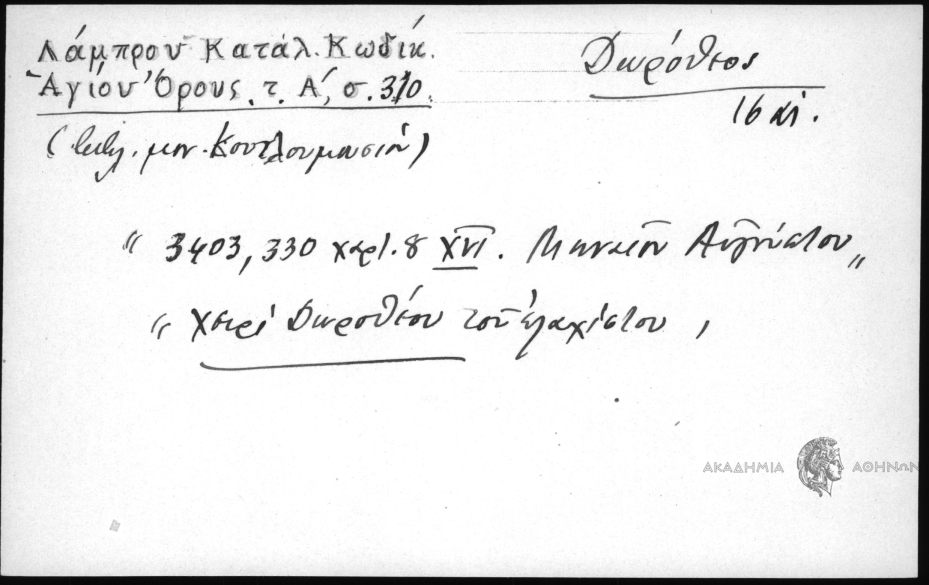 Λάμπρου Κατάλ. Κωδίκ.
Ἁγίου Ὄρους, τ. Α΄, σ. 310.
Δωρόθεος
16 αἰ.
(βιβλ. μον. Κουτλουμουσίου)
" 3403, 330 χαρτ. 8 XVI. Μηναῖον Αὐγούστου "
" χειρὶ Δωροθέου τοῦ ἐλαχίστου,
ΑΚΑΔΗΜΙΑ ΑΘΗΝΩΝ